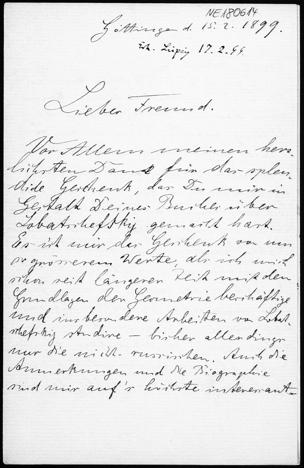 NE180614
Göttingen d. 15. 2. 1899.
Erh. Leipzig 17.2.99
Lieber Freund.
Vor Allem meinen herz-
lichsten Dank für das splen-
dide Geschenk, das Du mir in
Gestalt Deines Buches über
Lobatschefskij gemacht hast.
Es ist mir das Geschenk von um
so grösserem Werte, als ich mich
schon seit längerer Zeit mit den
Grundlagen der Geometrie beschäftige
und insbesondere Arbeiten von Lobat-
schefskij studire – bisher allerdings
nur die nicht-russischen. Auch die
Anmerkungen und die Biographie
sind mir auf's höchste interessant